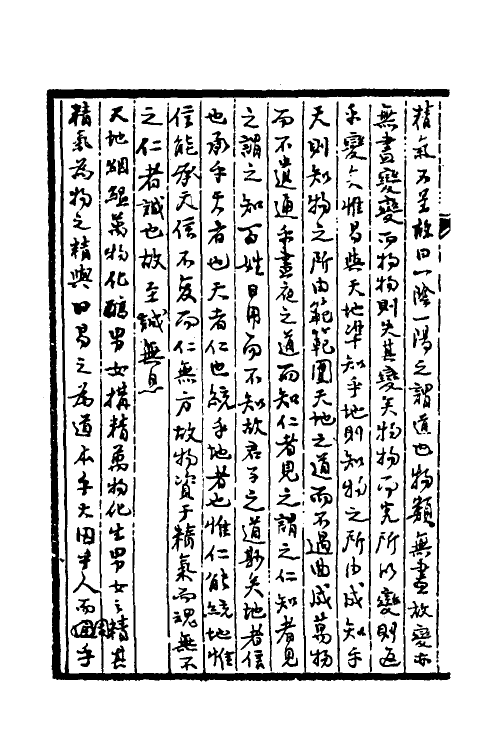 精氣不至故曰一陰一陽之謂道也物類無盡故變亦
無盡變變而物物則失其變矣物物而究所以變則返
乎變矣惟易與天地準知乎地則知物之所由成知乎
天則知物之所由範範圍天地之道而不過曲成萬物
而不遺通乎晝夜之道而知仁者見之謂之仁知者見
之謂之知百姓日用而不知故君子之道鮮矣地者信
也承乎天者也天者仁也統乎地者也惟仁能統地惟
信能承天信不爰而仁無方故物資于精氣而魂無不
之仁者誠也故至誠無息
天地絪縕萬物化醇男女構精萬物化生男女之精其
精氣為物之精與曰易之為道本乎天因乎人而通乎